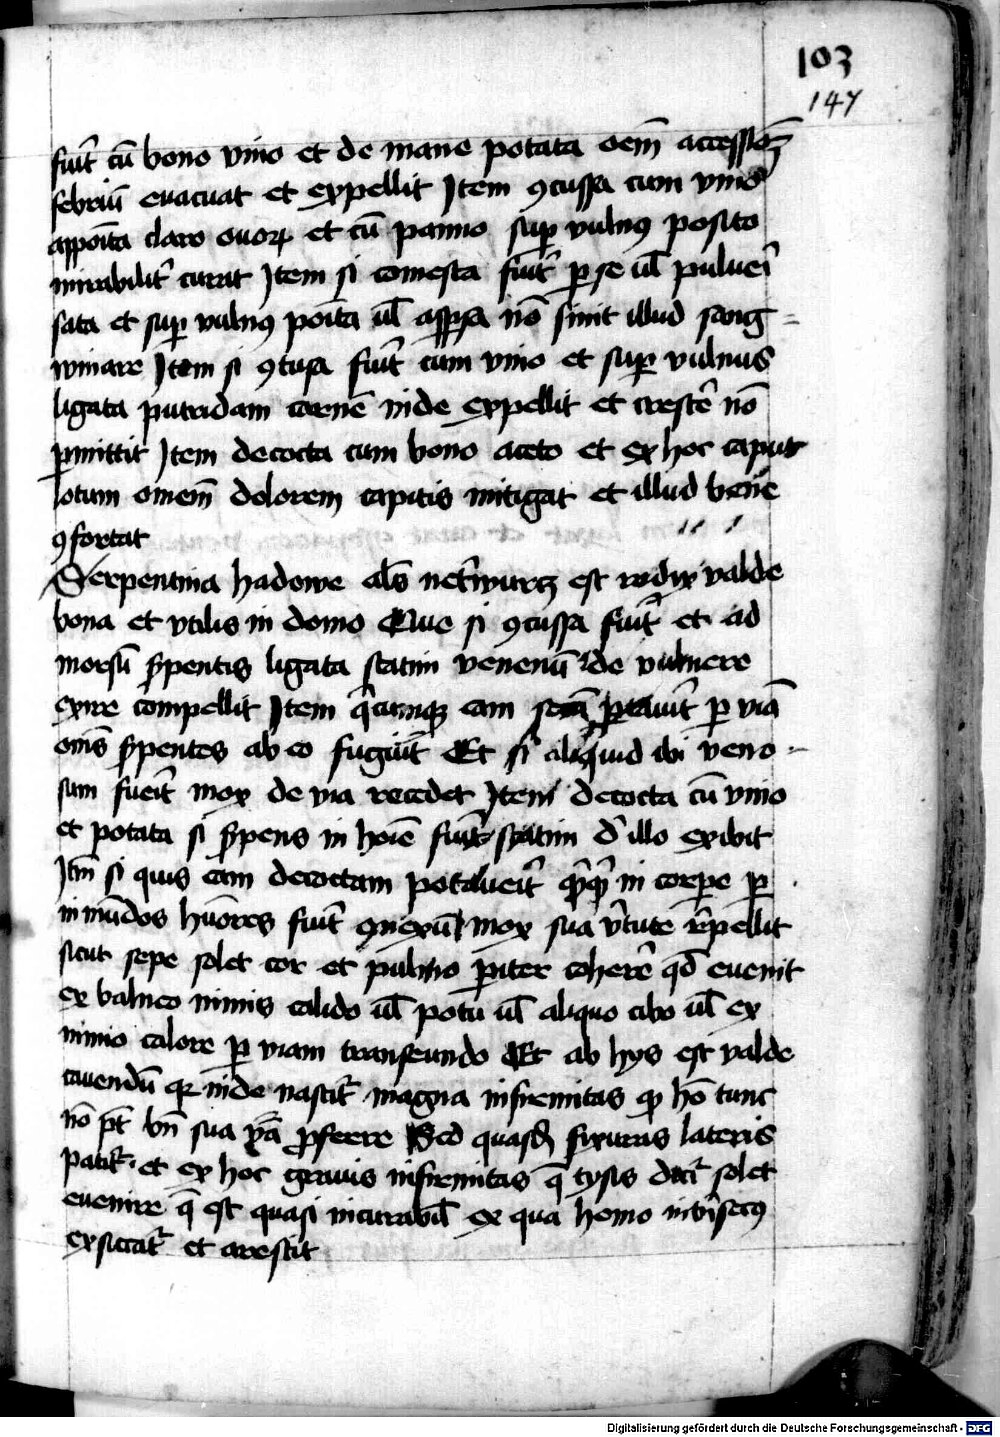 103
147
fuit̄ cū bono vino et de mane potata oēm accessionē
febriū euacuat et expellit Item ꝯcussa cum vino
appoīta claro ouoꝝ et cū panno suꝑ vulnꝰ posito
mirabilit̄ curat Item si comesta fuit̄ ꝑ se ul̄ puluei᷑
sata et suꝑ vulnꝰ poīta ul̄ asꝑsa nō sinit illud sang=
winare Item si ꝯtusa fuit̄ cum vino et suꝑ vulnus
ligata putridam carnē inde expellit et crescer̄ nō
ꝑmittit Item decocta cum bono aceto et ex hoc caput
lotum omem̄ dolorem capitis mitigat et illud bene
ꝯfortat
Serpentina hadowe al̄s net̄wurcz est radix valde
bona et vtilis in domo Que si ꝯcussa fuit̄ et ad
morsū s̄pentis ligata statim venenū de vulnere
exire compellit Item q̄cumqꝫ eam ꝑ viā
om̄s s̄pentes ab eo fugiūt Et si aliquid ibi veno-
sum fueit̄ mox de via recedet Item decocta cū vino
et potata si s̄pens in hoīe fuit̄ statim d̄ illo exibit
Itm̄ si quis eam decoctam potaueit̄ in corpe ꝑ
inmūdos hūores fuit̄ ꝯnexū mox sua v̄tute r̄pellit
sicut sepe solet cor et pulmo ꝑiter coherē qd̄ euenit
ex balneo nimis calido ul̄ potu ul̄ aliquo cibo ul̄ ex
nimio calore ꝑ viam transeundo Et ab hys est valde
cauendū qꝛ inde nascit᷑ magna infirmitas ꝙ hō tunc
nō pt̄ bn̄ sua v̄ba ꝓferre Sed quasdā fixuras lateris
patit᷑ et ex hoc grauis infirmitas q̄ tysis dicit᷑ solet
euenire q̄ est quasi incurabil̄ ex qua homo intrīsecꝰ
exsiccat᷑ et arescit
Digitalisierung gefördert durch die Deutsche Forschungsgemeinschaft - DFG